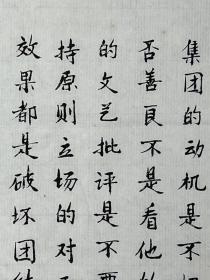 集团的动机是不
否善良不是看他
的文艺批评是不要
持原则立场的对
效果都是破坏团结